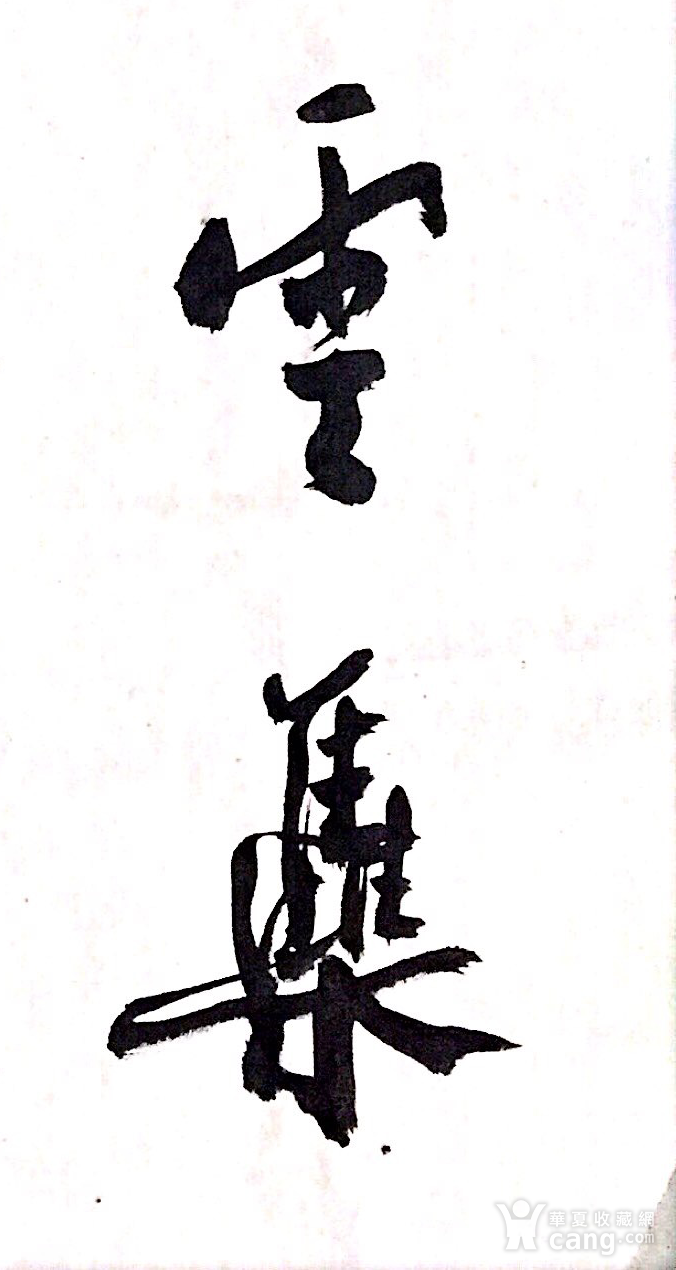 雲
集
華夏收藏網
cang.com